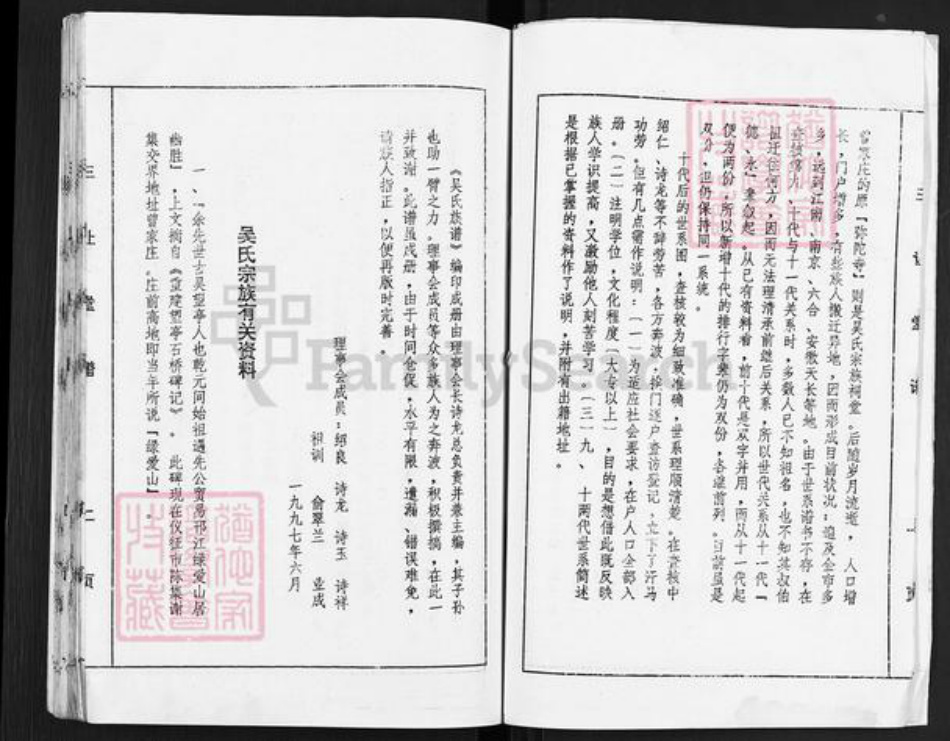 曾家庄的原「弥陀寺」则是吴氏宗族祠堂。后随岁月流逝，人口增
长，门户增多，有些族人搬迁异地，因而形成目前状况：遍及全市多
乡，远到江南、南京、六合、安徽天长等地。由于世系谱书不存，在
查核第九、十代与十一代关系时，多数人已不知祖名，也不知其叔伯
祖迁往何方，因而无法理清承前继后关系，所以世代关系从十一代「
德、永」辈叙起。从已有资料看，前十代是双字并用，而从十一代起
便为两份，所以新增十代的排行字辈仍为双份，各继前列。目前虽是
双份，但仍保持同一系统。
十代后的世系图，查核较为细致准确，世系理顺清楚。在查核中
绍仁、诗龙等不辞劳苦，各方奔波，挨门逐户查访登记，立下了汗马
功劳。但有几点需作说明：（一）为适应社会要求，在户人口全部入
册。（二）注明学位，文化程度（大专以上），目的是想借此既反映
族人学识提高，又激励他人刻苦学习。（三）九、十两代世系简述
是根据已掌握的资料作了说明，并附有出籍地址。
《吴氏族谱》编印成册由理事会长诗龙总负责并兼主编，其子孙
也助一臂之力。理事会成员等众多族人为之奔波，积极撰稿，在此一
并致谢。此谱虽成册，由于时间仓促，水平有限，遗漏、错误难免，
请族人指正，以便再版时完善。
理事会成员：绍良 诗龙 诗玉 诗祥
祖训 俞翠兰 业成
一九九七年六月
吴氏宗族有关资料
一、「余先世古吴望亭人也乾元间始祖遇先公贸易邗江绿爱山居
幽胜」，上文摘自《重建望亭石桥碑记》。此碑现在仪征市陈集谢
集交界地址曾家庄。庄前高地即当年所说「绿爱山」。
三让堂谱 二页
FamilySearch